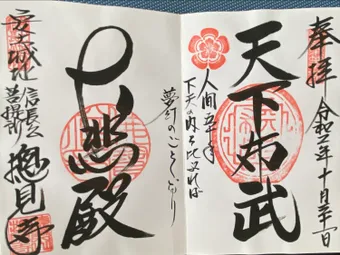 奉拝
令和
年十月
日
天下布武
人間五十年
下天の内を比ぶれば
夢幻のごとくなり
大悲殿
安土城址
信長公
菩提所
摠見寺